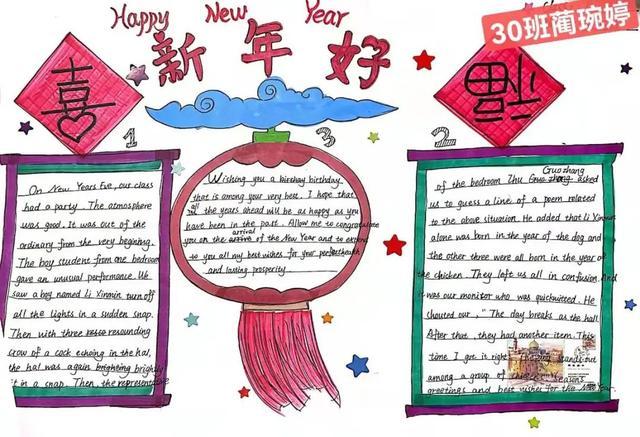 Happy New Year
30班蔺琬婷
新年好
喜
福
1
On New Years Eve, our class
had a party. The atmosphere
was good. It was out of the
ordinary from the very begining.
The boy students from one bedroom
gave an unusual performance. We
saw a boy named Li Xinmin turn off
all the lights in a sudden snap.
Then with three resounding
crow of a cock echoing in the hal,
the hal was again brighting brightly
it in a snap. Then, the representative
2
of the bedroom Zhu Guozhang asked
us to guess a line of a poem related
to the above situation. He added that Li Xinmin
alone was born in the year of the dog and
the other three were all born in the year of
the chicken. They left us all in confusion. And
it was our monitor who was quickwitted. He
shouted our, "The day breaks as the hall
After that, they had another item. This
time I get is right
among a group of
greetings and best wishes for the New Year.
3
Wishing you a birthay birthday
that is among your very best. I hope that
all the years ahead will be as happy as you
have been in the past. Allow me to congratulate
you on the arrival of the New Year and to extend
to you all my best wishes for your perfect health
and lasting prosperity